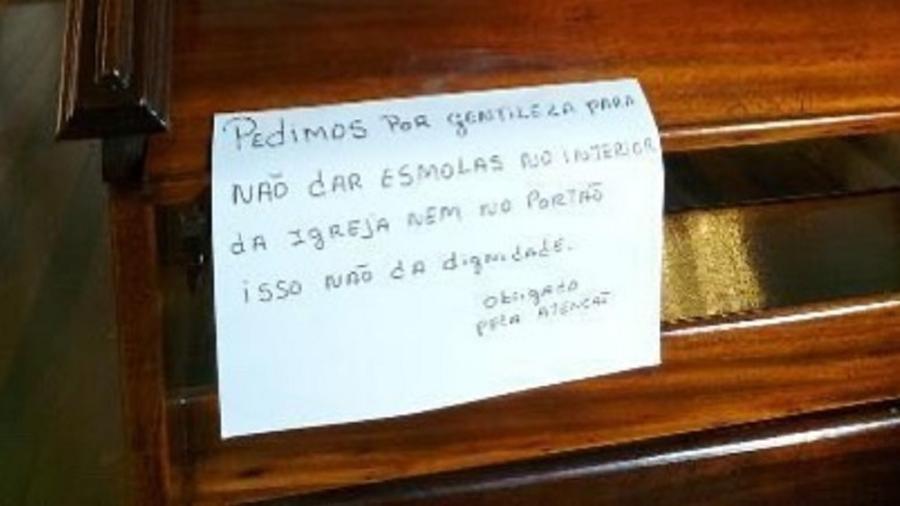 PEdiMOS POR gENTiLEZA PARA
NÃO dAR ESMOLAS NO iNTERiOR
dA IgREJA NEM NO PORTÃO
iSSO NÃO dA digNidAdE.
ObRigAdO
PELA ATENÇÃO